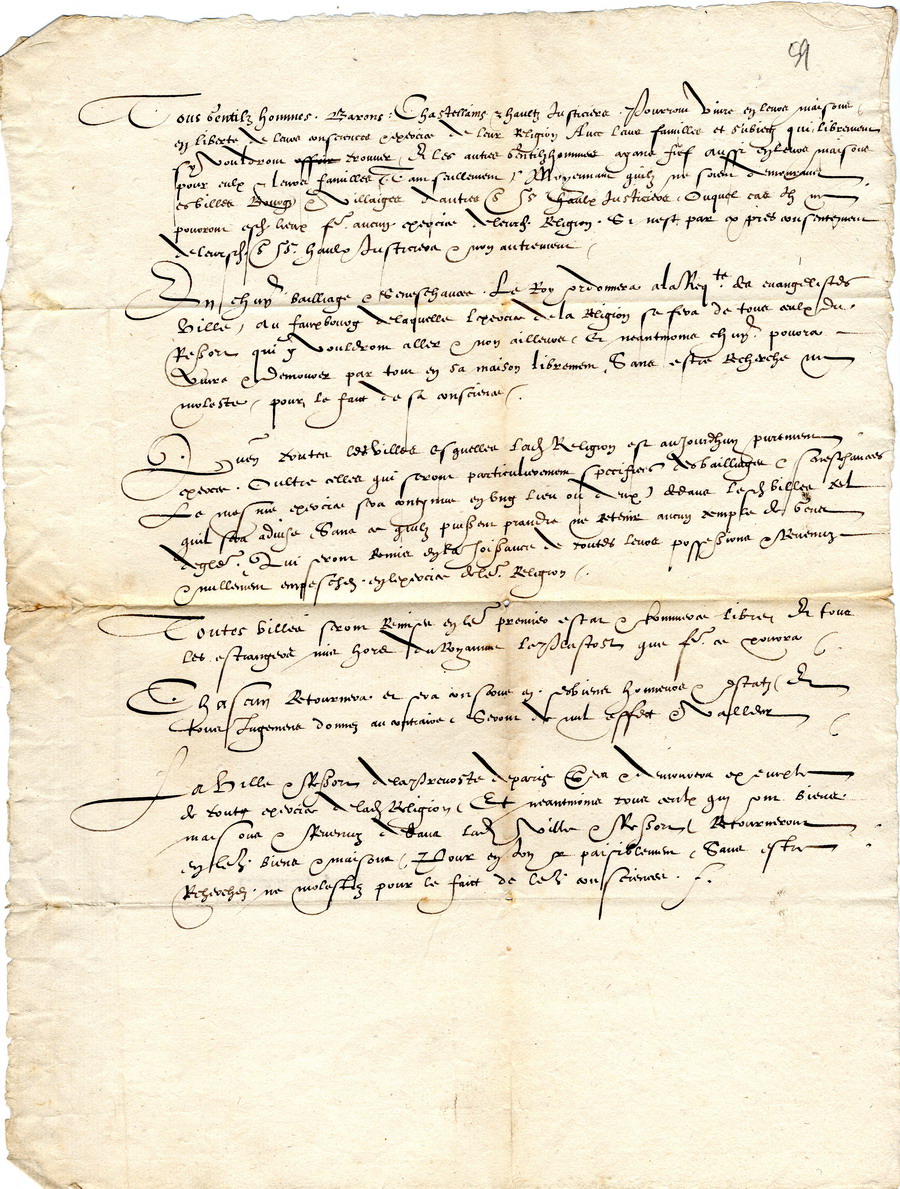 59
Tous Gentilz hommes. Barons. Chastellains & haultz Justiciers. Pourront vivre en leurs maisons
en liberte de leurs consciences & exercice de leur Religion Avec leurs familles et subiectz qui librement
sy vouldront trouver, Et les autres Gentilzhommes ayans fief aussi en leurs maisons
pour eulx & leurs familles Tant seullement, Moyennant quilz ne soient demourans
es villes Bourgs & villaiges dautres haulx Justiciers, Ouquel cas Ilz ne
pourront esd. lieux fe. aucun exercice de leurd. Religion. Si nest par expres consentement
de leursd. haulx Justiciers & non autrement
En chun bailliage & Seneschaucee. Le Roy ordonnera a la Reqte des evangelistes
Ville, au faux bourg de laquelle lexercice de la Religion se fera de tous ceulx du
Ressort qui y vouldront aller & non ailleurs, Et neantmoins chun pourra
vivre & demourer par tout en sa maison librement, Sans estre Recherche ne
moleste, pour le faict de sa conscience.
Quen toutes les villes esquelles lad. Religion est aujourdhuy purement
exercee. Oultre celles qui seront particulierement specifiees desd bailliages & seneschaucees
Le mesme exercice sera continue en ung lieu ou deux, dedans lesd. villes tel
quil sera advise Sans ce quilz puissent prandre ne retenir aucun temple de gens
deglise. Qui seront Remis en la Joissance de toutes leurs possessions & Revenuz
& nullement empeschez en lexercice de le. Religion.
Toutes villes seront Remises en le. premier estat & commerce libre, Et tous
les estrangers mis hors du Royaume le plustost que fe. ce pourra
Chascun Retournera et sera conserve en ses biens honneurs & estatz, Et
tous Jugemens donnez au contraire, Seront de nul effect & valleur
La Ville & Ressort de la Prevoste de paris Sera & demourera exempte
de toute exercice de lad. Religion, Et neantmoins tous ceulx qui ont biens
maisons & Revenuz dedans lad. Ville & Ressort, Retourneront
en leurs biens & maisons, Pour en Joir paisiblement, Sans estre
Recherchez. ne molestez pour le faict de leurs consciences.